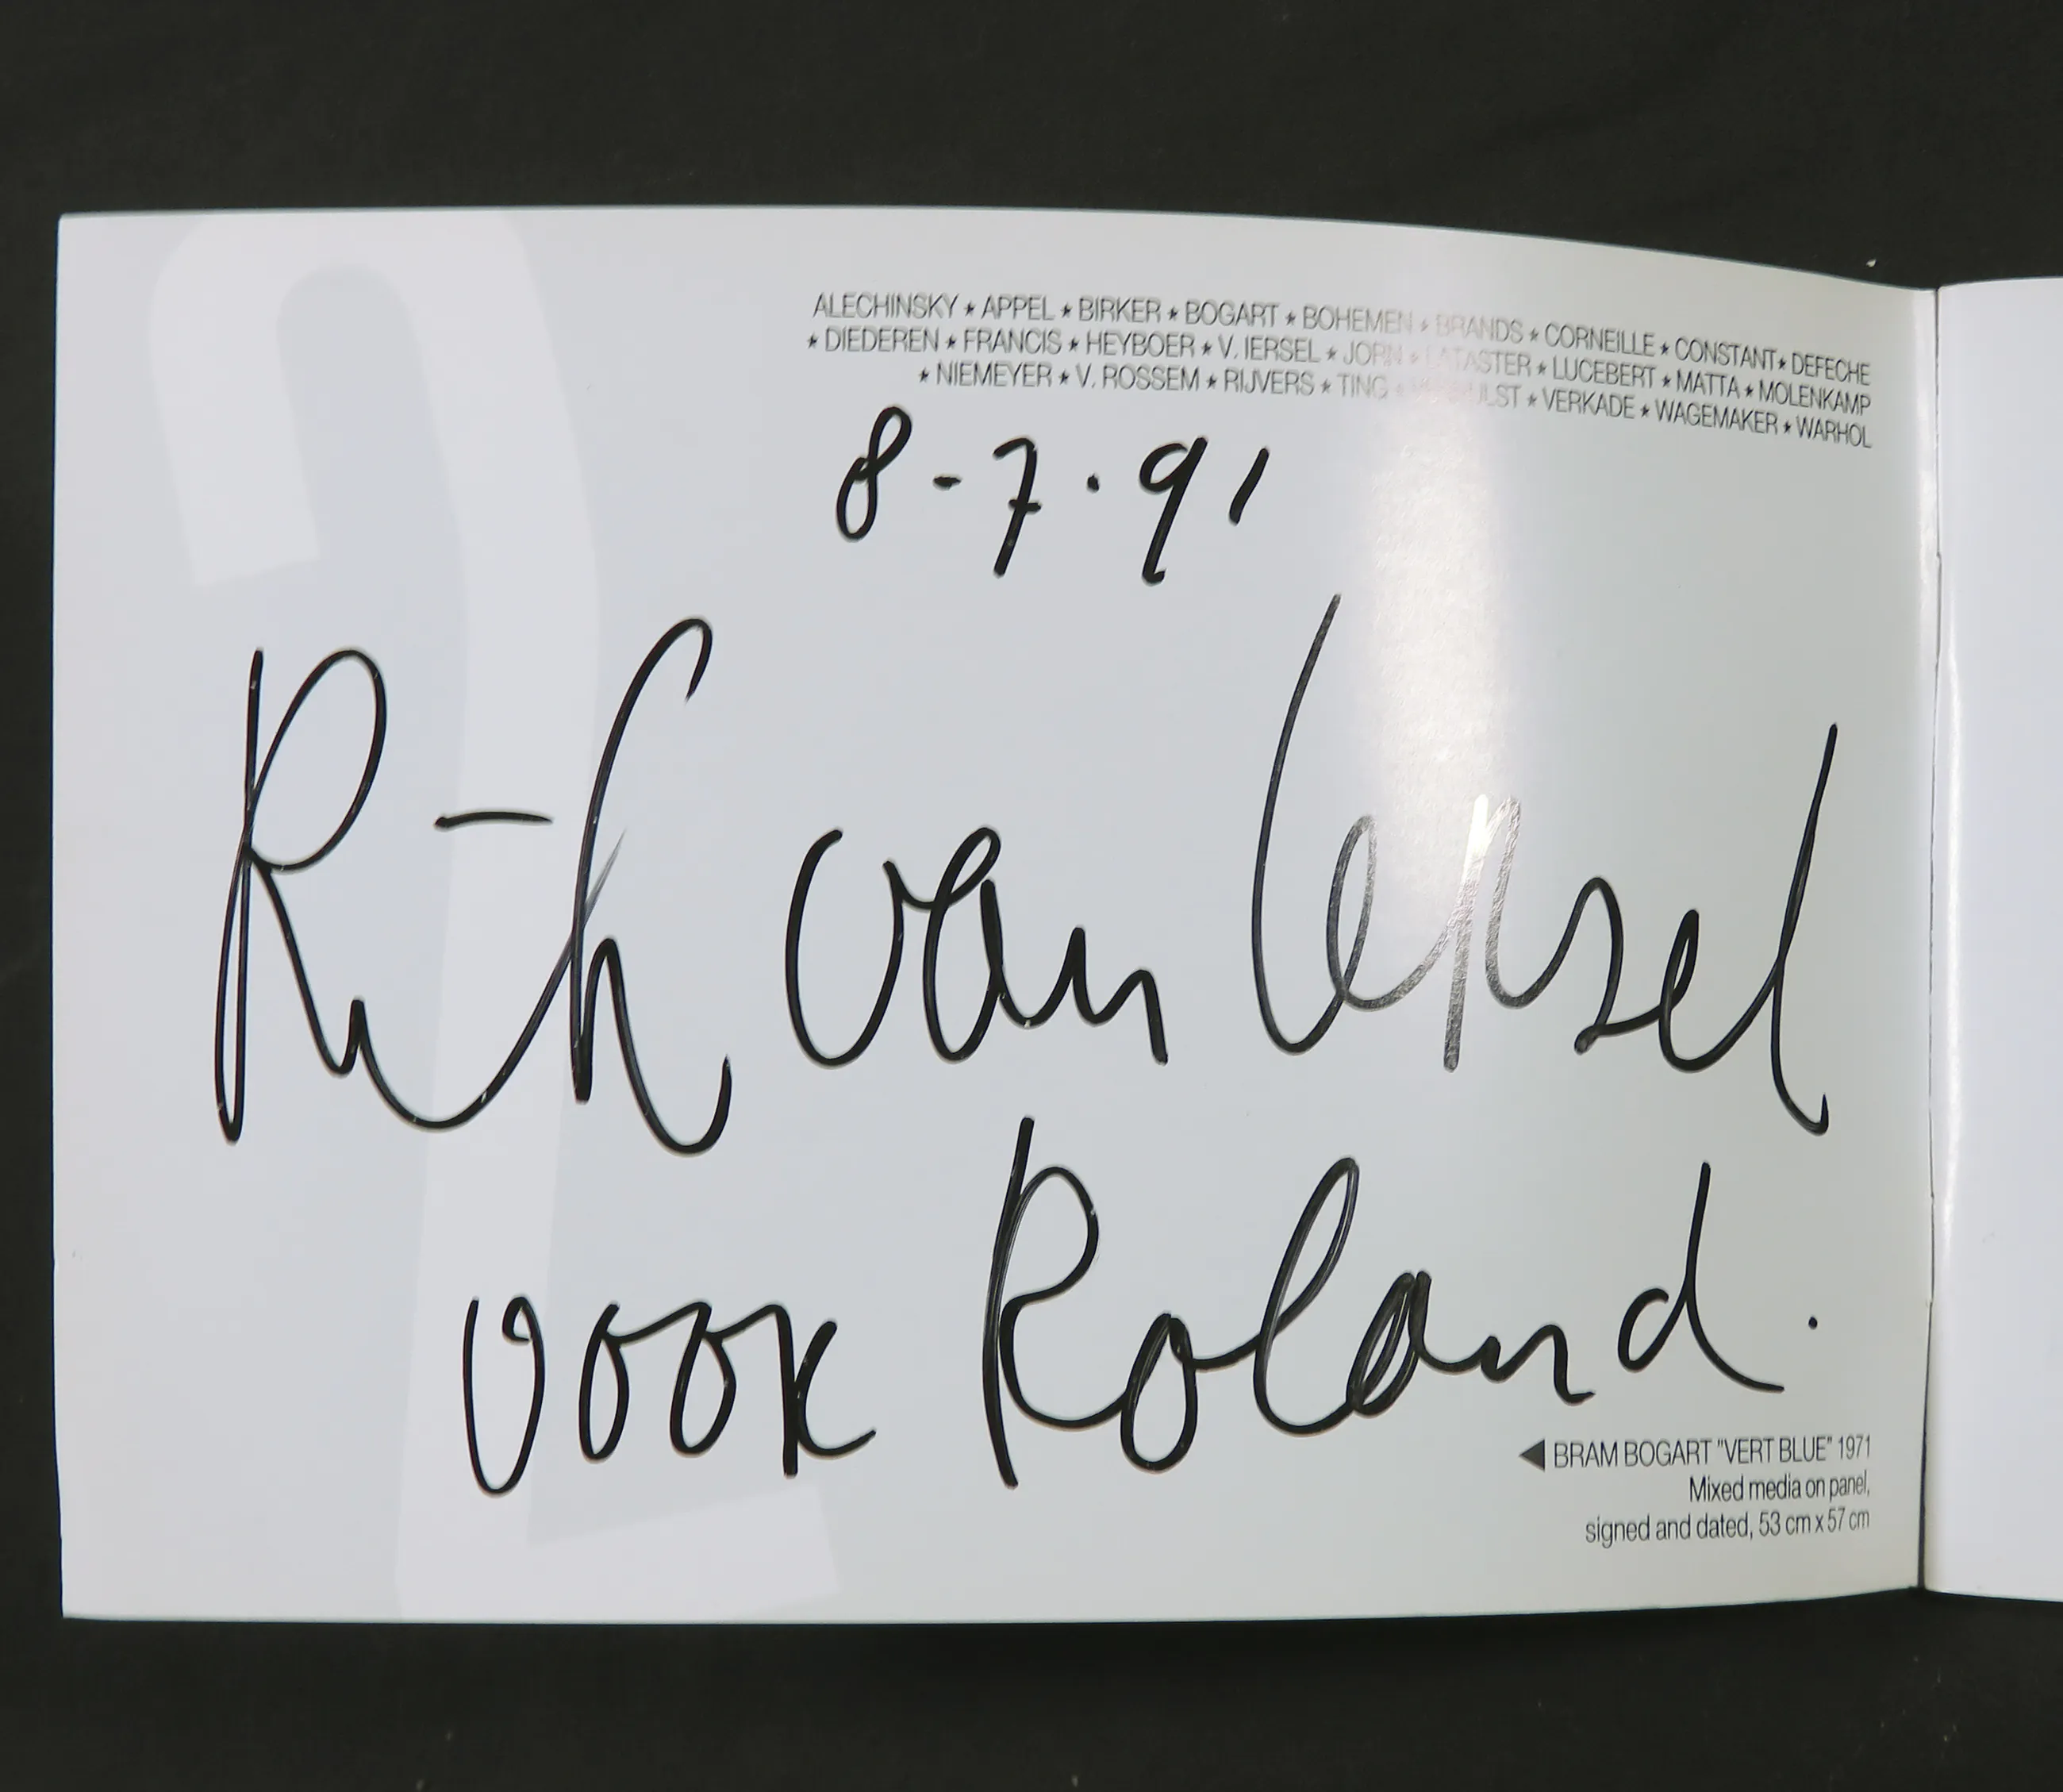 ALECHINSKY ★ APPEL ★ BIRKER ★ BOGART ★ BOHEMEN ★ BRANDS ★ CORNEILLE ★ CONSTANT ★ DEFECHE
★ DIEDEREN ★ FRANCIS ★ HEYBOER ★ V. IERSEL ★ JORN ★ LATASTER ★ LUCEBERT ★ MATTA ★ MOLENKAMP
★ NIEMEYER ★ V. ROSSEM ★ RIJVERS ★ TING ★ ★ VERKADE ★ WAGEMAKER ★ WARHOL
8-7.91
Rik van Iersel
voor Roland.
◀ BRAM BOGART "VERT BLUE" 1971
Mixed media on panel,
signed and dated, 53 cm x 57 cm